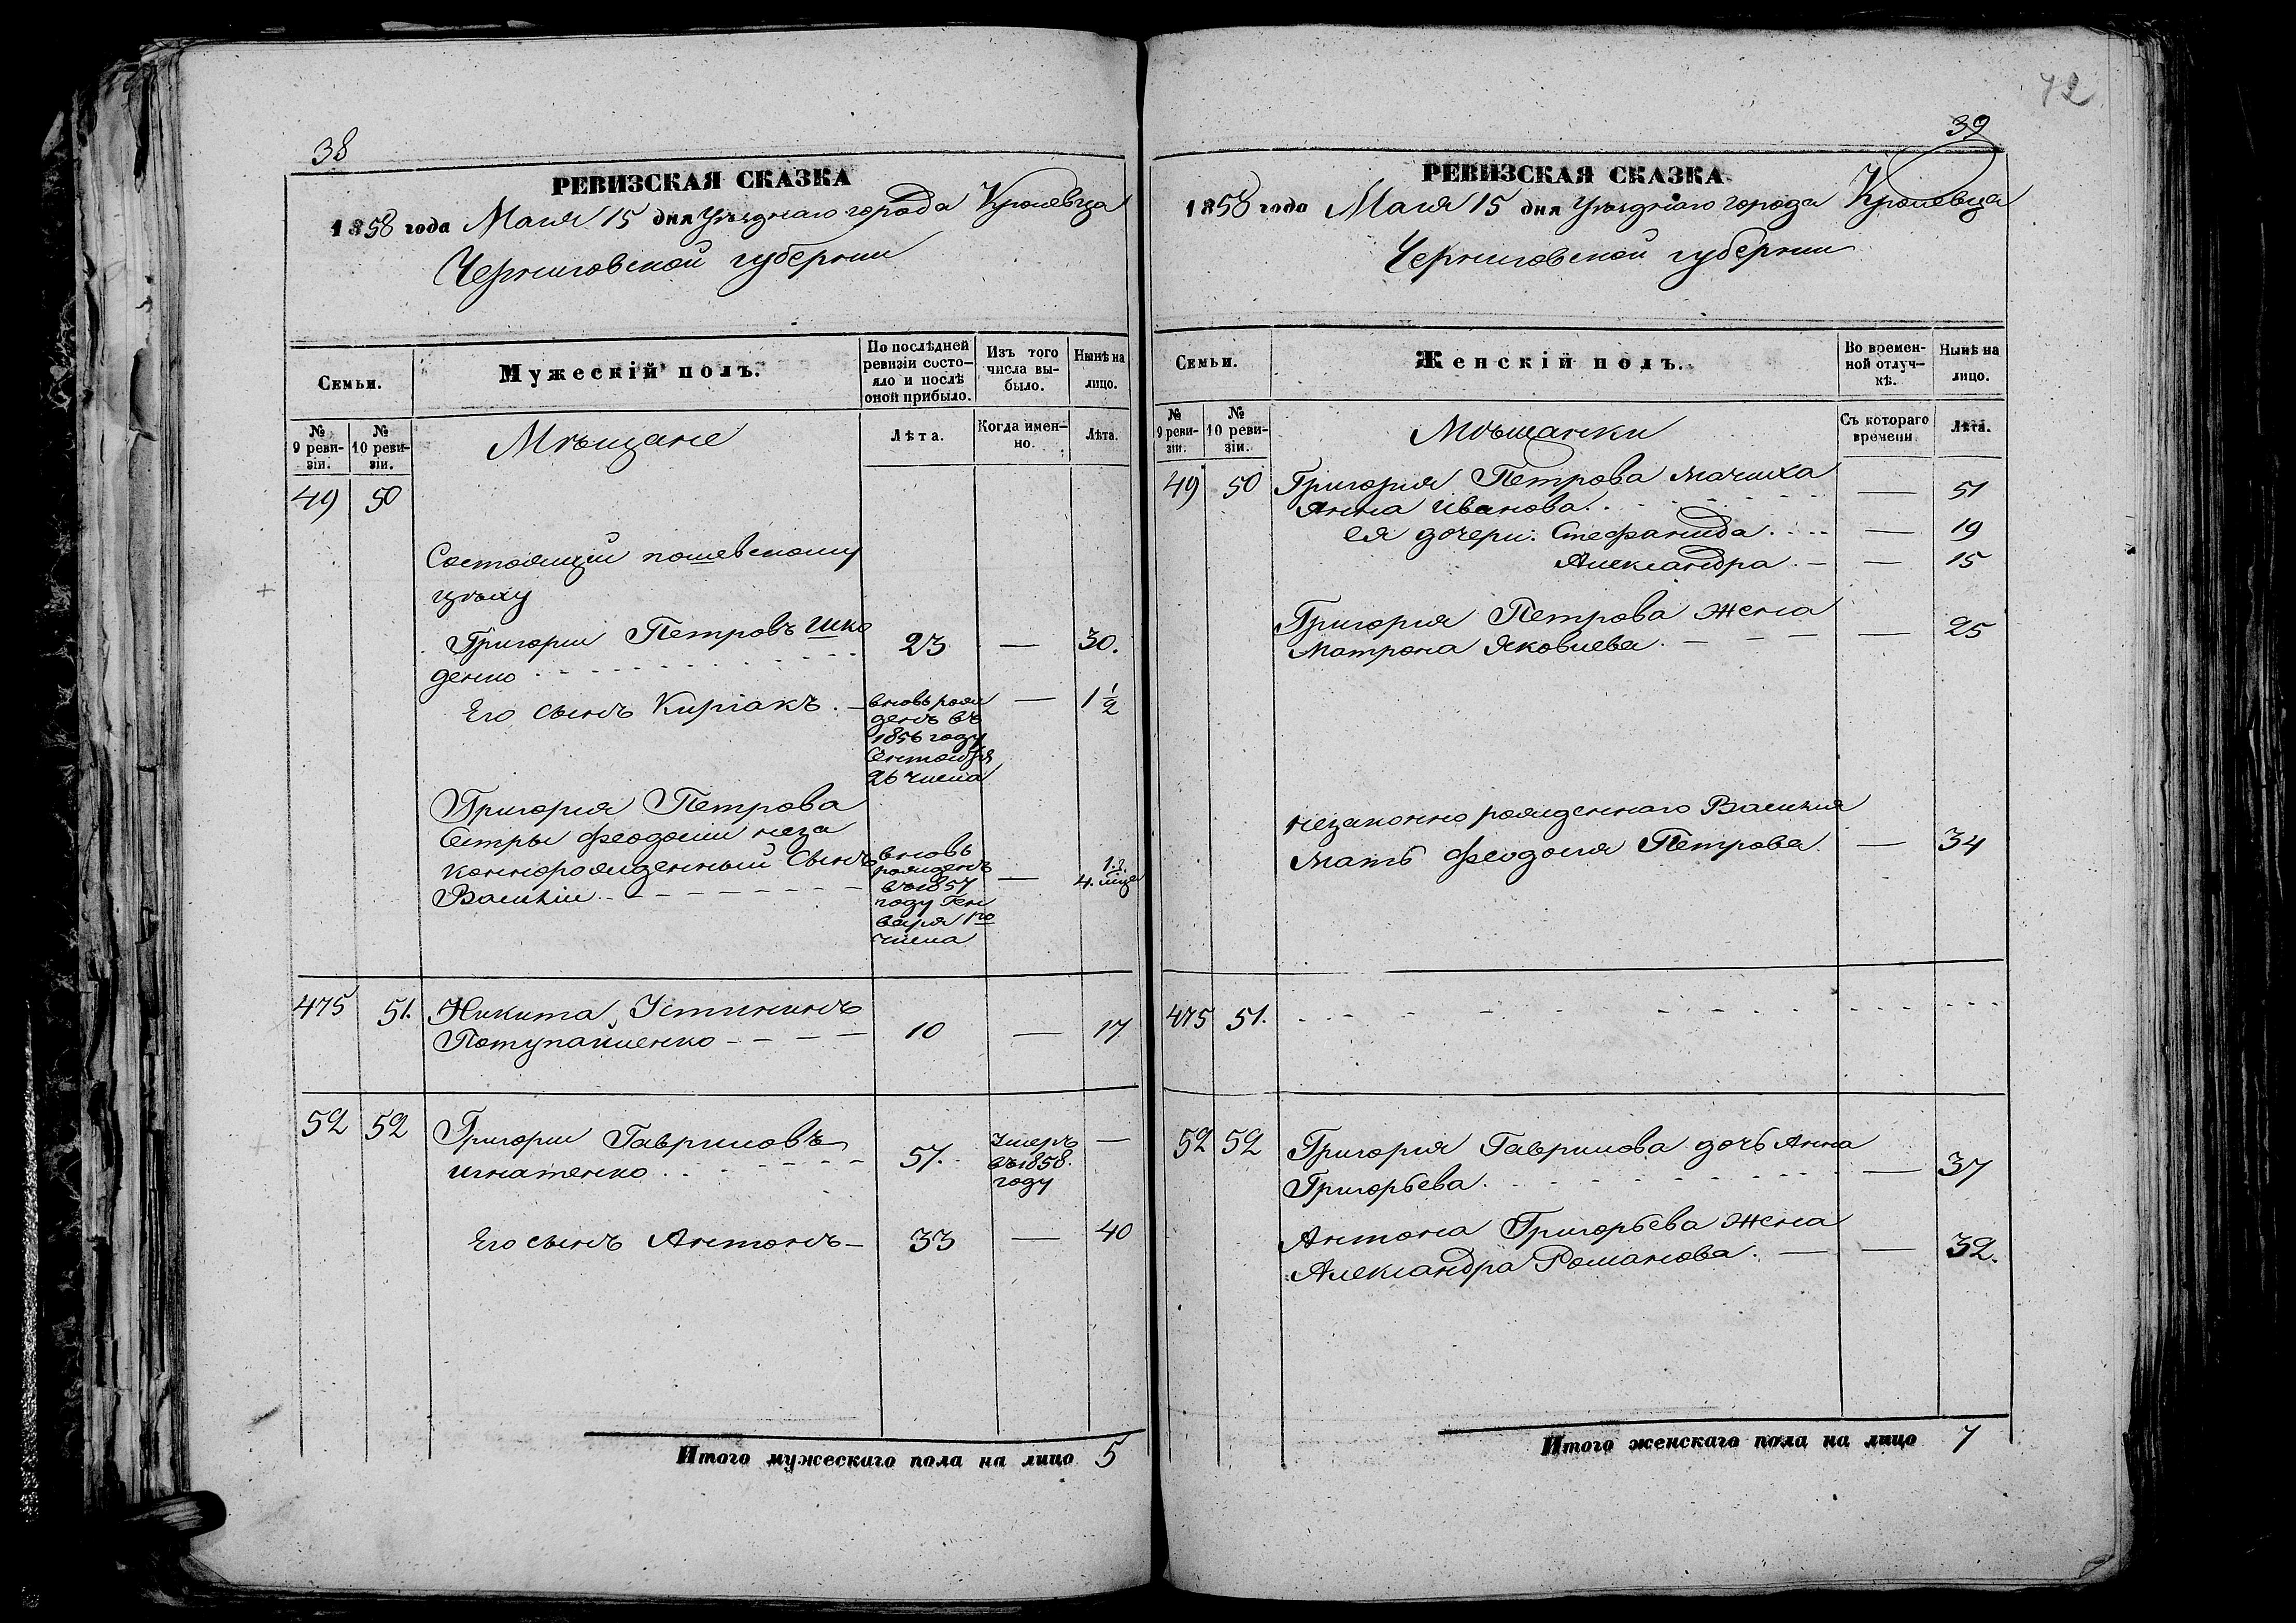 38
РЕВИЗСКАЯ СКАЗКА
1858 года Маія 15 дня Уѣзднаго города Кролевца
Черниговской губерніи
Семьи.
Мужескій полъ.
По послѣдней
ревизіи состо-
яло и послѣ
оной прибыло.
Изъ того
числа вы-
было.
Нынѣ на
лицо.
№
9 реви-
зіи.
№
10 реви-
зіи.
Мѣщане
Лѣта.
Когда имен-
но.
Лѣта.
49 50
Состоящіи
цѣху
Григорій Петровъ Шко
денко 23 — 30.
Его сынъ Киріакъ. — — 1 1/2
вновь рож
денъ въ
1856 году
Сентября
26 числа
Григорія Петрова
Сестры Феодосіи неза
коннорожденный Сынъ
Василій — 1. г.
4. мѣся
вновь
рожденъ
въ 1857
году Ген
варя 1го
числа
475 51. Никита Устининъ
Потупайленко 10 — 17
52 52 Григорій Гавриловъ
Игнатенко 57. —
Умеръ
въ 1858.
году
Его сынъ Антонъ 33 — 40
Итого мужескаго пола на лицо 5
72
39
РЕВИЗСКАЯ СКАЗКА
1858 года Маія 15 дня Уѣзднаго города Кролевца
Черниговской губерніи
Семьи.
Женскій полъ.
Во времен-
ной отлуч-
кѣ.
Нынѣ на
лицо.
№
9 реви-
зіи.
№
10 реви-
зіи.
Мѣщанки
Съ котораго
времени.
Лѣта.
49 50 Григорія Петрова мачиха
Анна Иванова. — 51
ея дочери: Стефанида — 19
Александра — 15
Григорія Петрова жена
Матрона Яковлева — 25
незаконно рожденнаго Василія
мать Феодосія Петрова — 34
475 51.
52 52 Григорія Гаврилова дочь Анна
Григорьева. — 37
Антона Григорьева жена
Александра Романова. — 32.
Итого женскаго пола на лицо 7